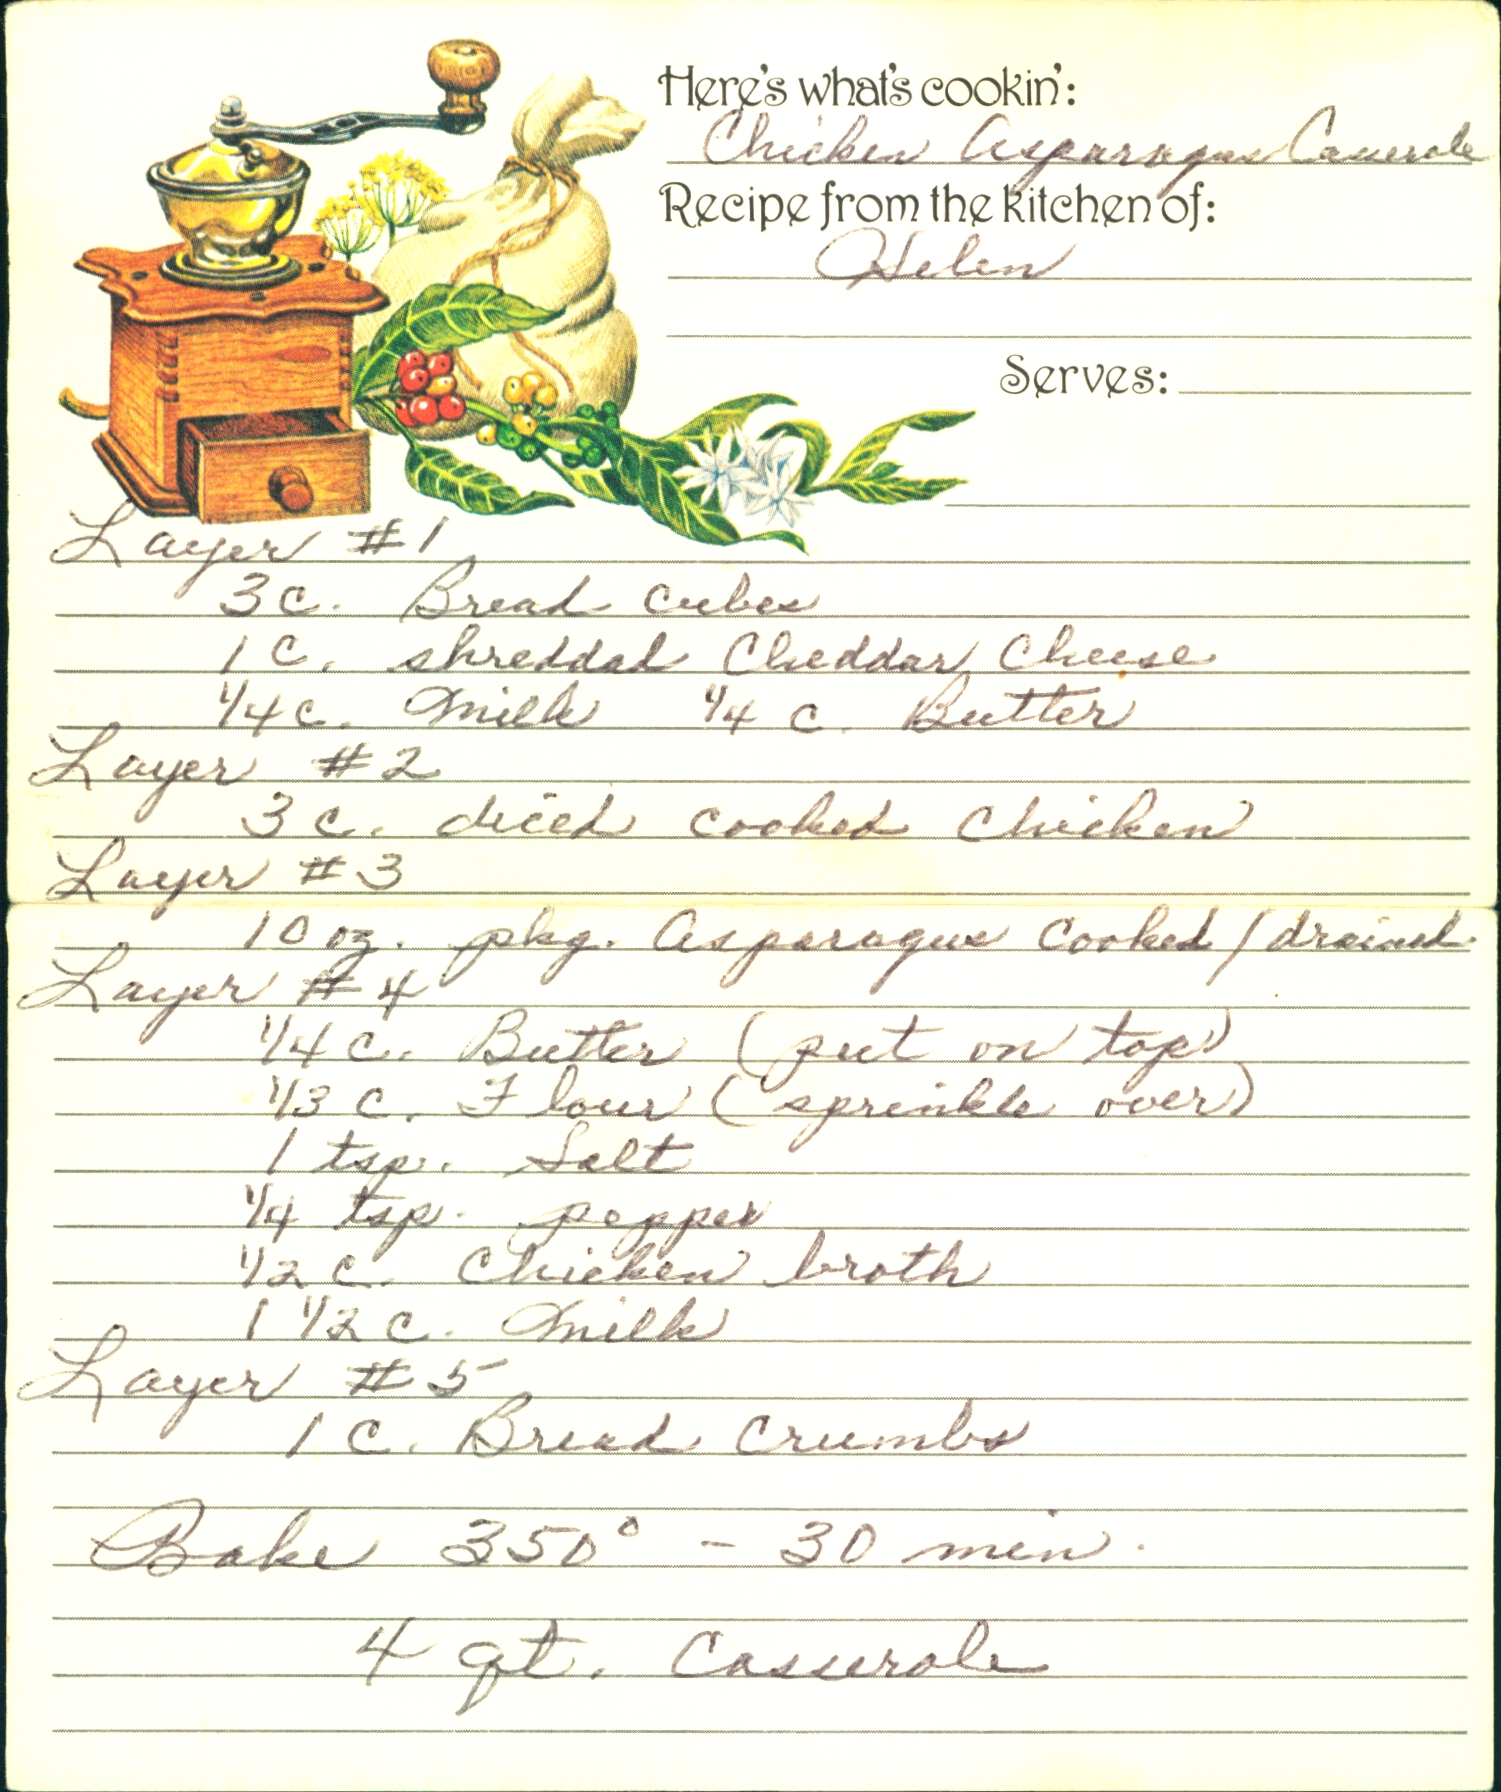 Here's what's cookin':
Chicken Asparagus Casserole
Recipe from the kitchen of:
Helen
Serves:
Layer #1
3 c. Bread cubes
1 c. shredded Cheddar Cheese
1/4 c. Milk 1/4 c. Butter
Layer #2
3 c. diced cooked chicken
Layer #3
10 oz. pkg. Asparagus Cooked/drained
Layer #4
1/4 c. Butter (put on top)
1/3 c. Flour (sprinkle over)
1 tsp. Salt
1/4 tsp. pepper
1/2 c. Chicken broth
1 1/2 c. Milk
Layer #5
1 c. Bread Crumbs
Bake 350° - 30 min.
4 qt. Casserole